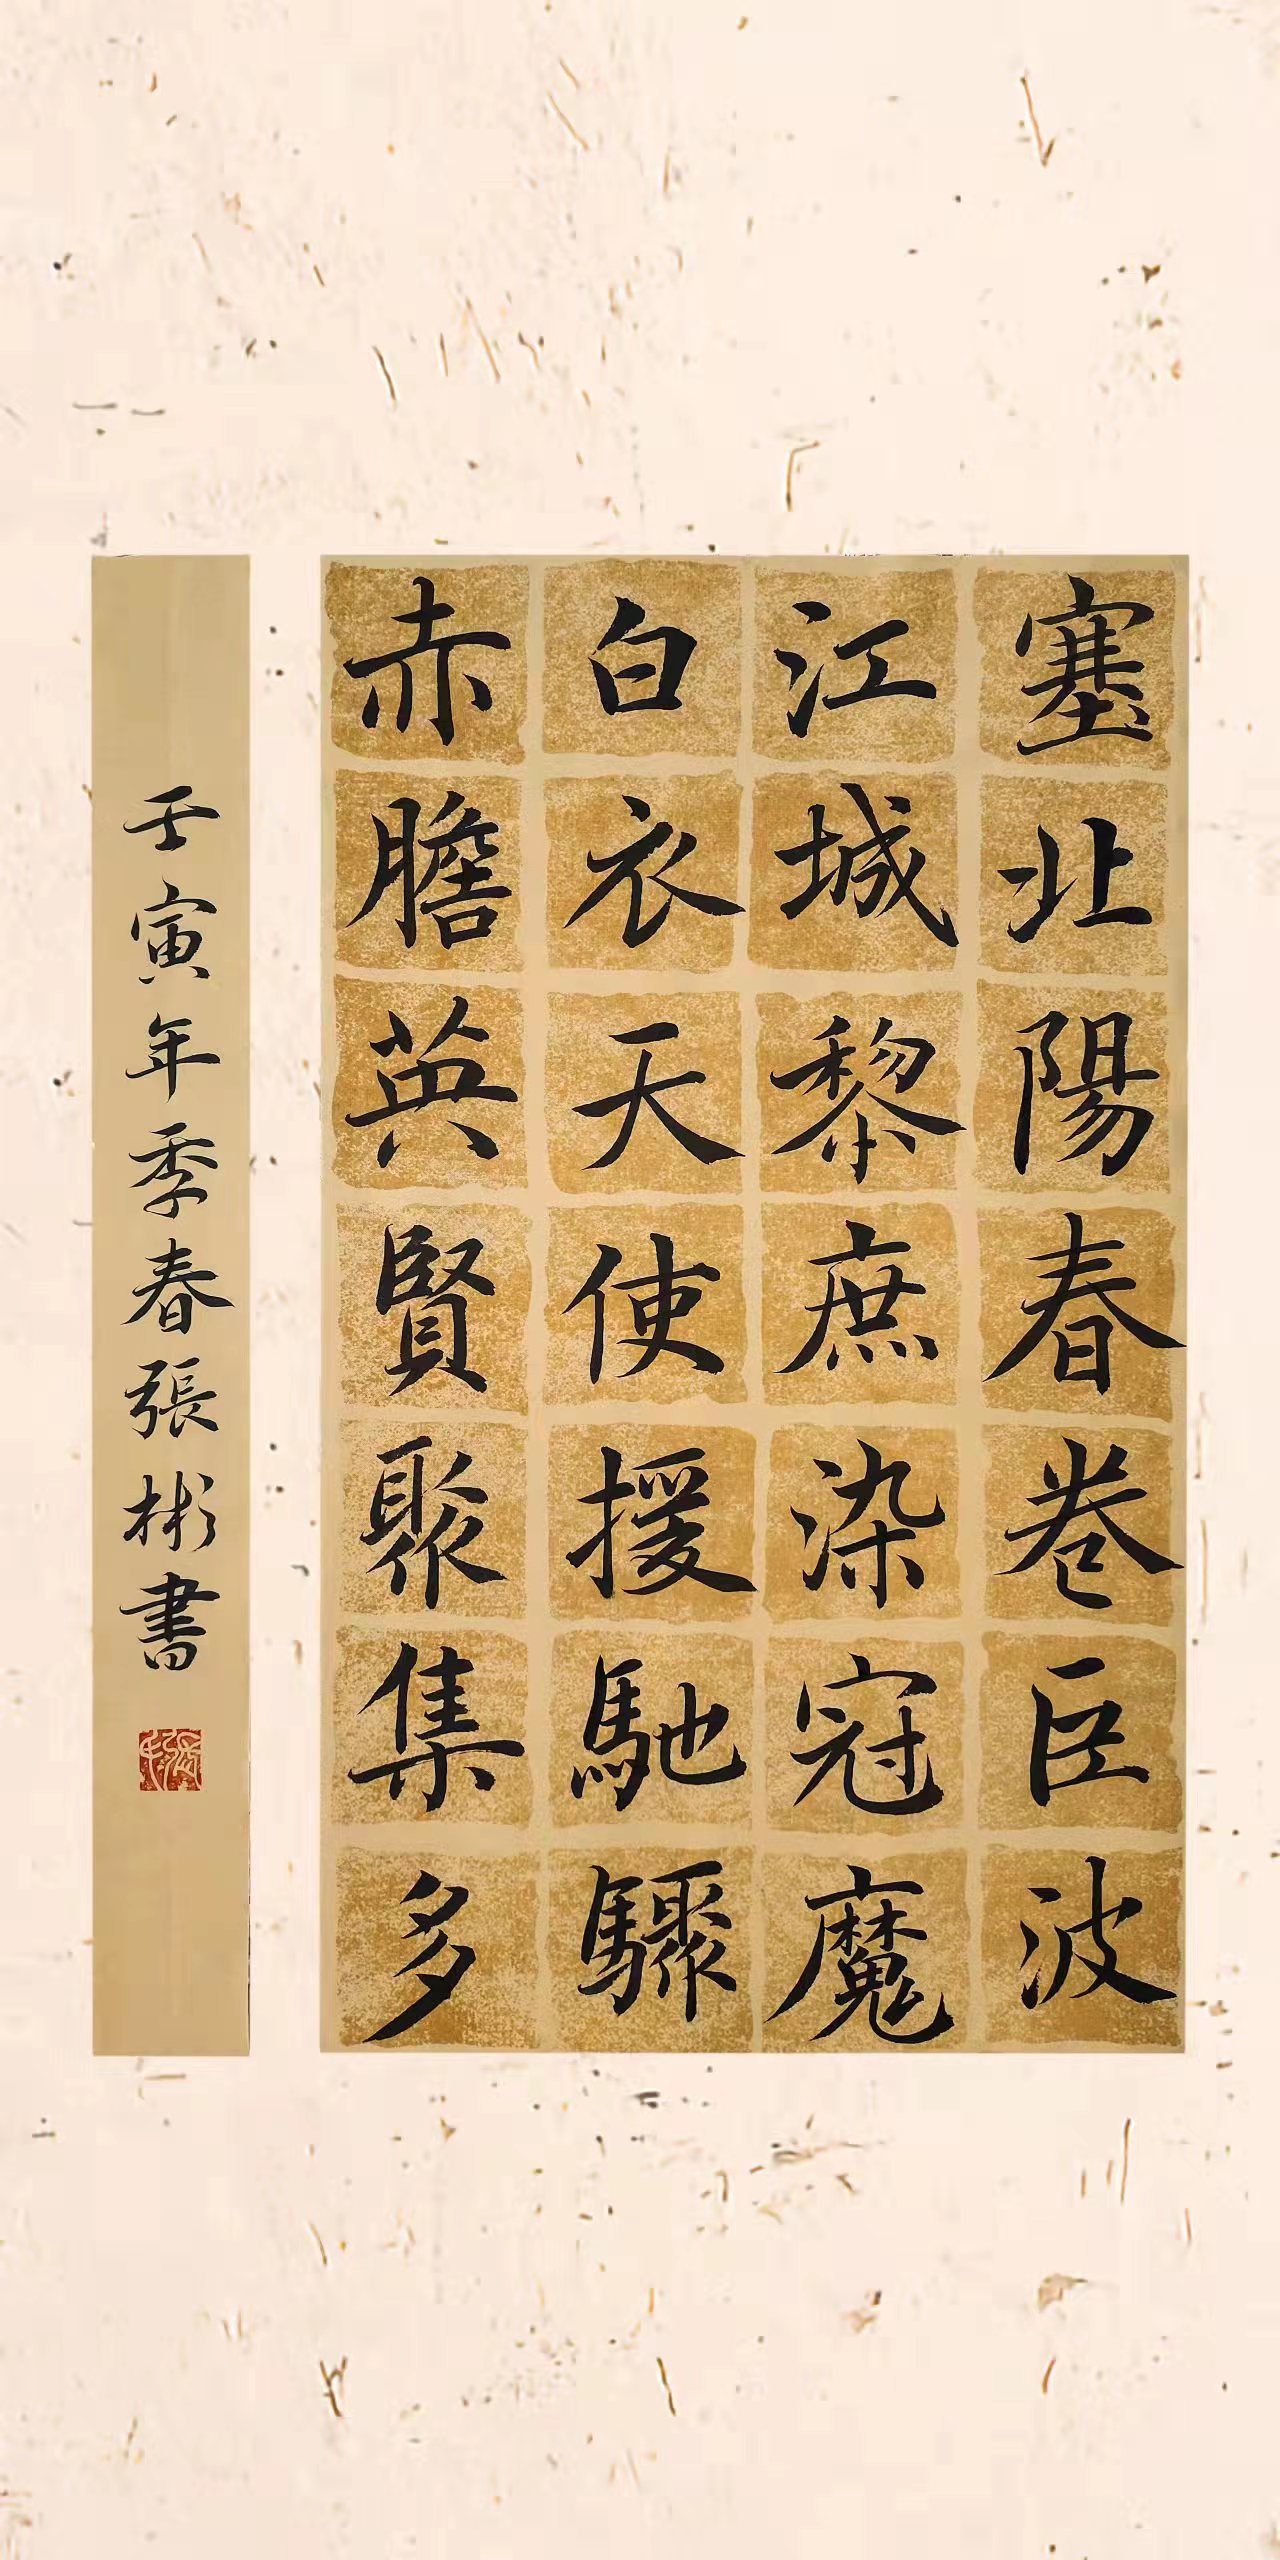 塞北陽春卷臣波
江城黎庶染冠魔
白衣天使援馳驟
赤膽英賢聚集多
壬寅年季春張彬書